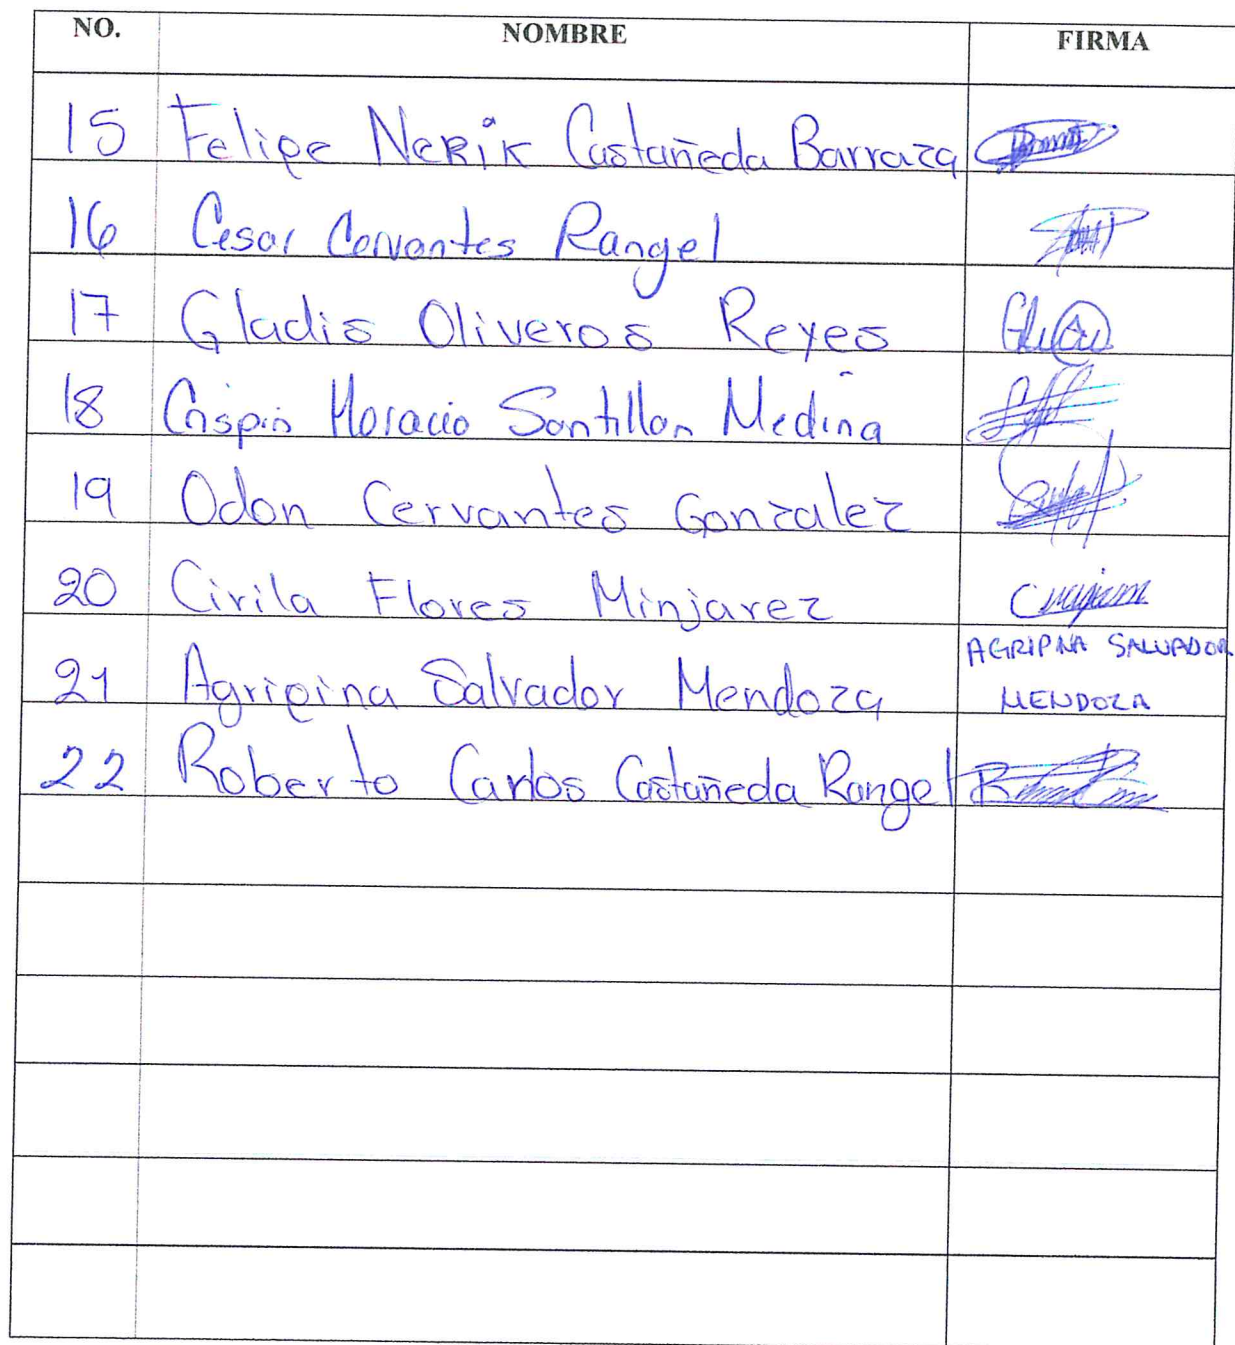 NO. NOMBRE FIRMA
15 Felipe NeRiK Castañeda Barraza
16 Cesar Cervantes Rangel
17 Gladis Oliveros Reyes
18 Crispin Horacio Santillan Medina
19 Odon Cervantes Gonzalez
20 Cirila Flores Minjarez
21 Agripina Salvador Mendoza AGRIPNA SALVADOR
MENDOZA
22 Roberto Carlos Castañeda Rangel